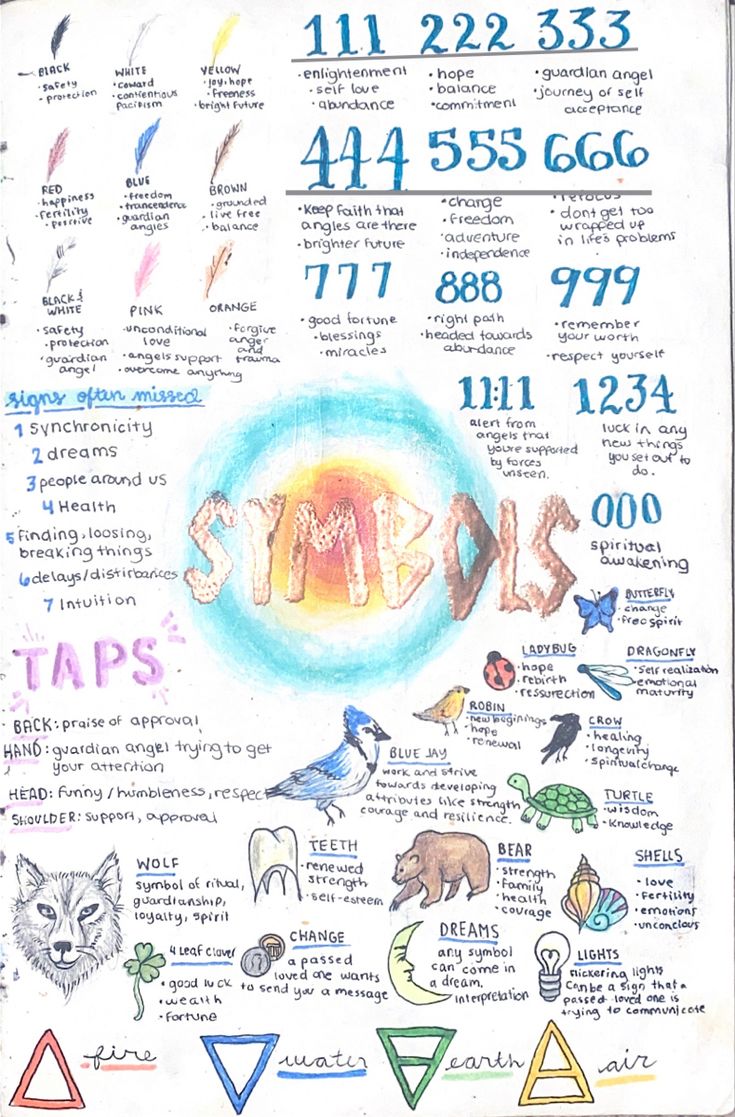 BLACK
• safety
• protection
WHITE
• coward
• contientious
pacifism
YELLOW
• joy, hope
• freeness
• bright future
RED
• happiness
• fertility
• positive
BLUE
• freedom
• trancendence
• guardian
angles
BROWN
• grounded
• live free
• balance
BLACK &
WHITE
• safety
• protection
• guardian
angel
PINK
• unconditional
love
• angels support
• overcome anything
ORANGE
• forgive
anger
and
trauma
111 222 333
• enlightenment
• self love
• abundance
• hope
• balance
• commitment
• guardian angel
• journey of self
acceptance
444 555 666
• Keep faith that
angles are there
• brighter future
• change
• freedom
• adventure
• independence
• refocus
• dont get too
wrapped up
in life's problems
777 888 999
• good fortune
• blessings
• miracles
• right path
• headed towards
abundance
• remember
your worth
• respect yourself
11:11
alert from
angels that
you're supported
by forces
unseen.
1234
luck in any
new things
you set out to
do.
000
spiritual
awakening
signs often missed
1 synchronicity
2 dreams
3 people around us
4 Health
5 finding, loosing,
breaking things
6 delays/distirbances
7 Intuition
SYMBOLS
TAPS
• BACK: praise of approval
HAND: guardian angel trying to get
your attention
HEAD: funny / humbleness, respect
SHOULDER: support, approval
BUTTERFLY
• change
• free spirit
LADYBUG
• hope
• rebirth
• ressurection
DRAGONFLY
• self realization
• emotional
maturity
ROBIN
• new beginings
• hope
• renewal
CROW
• healing
• longevity
• spiritual change
BLUE JAY
work and strive
towards developing
attributes like strength,
courage and resilience.
TURTLE
• wisdom
• Knowledge
WOLF
symbol of ritual,
guardianship,
loyalty, spirit
TEETH
• renewed
strength
• self-esteem
BEAR
• strength
• family
• health
• courage
SHELLS
• love
• fertility
• emotions
• unconcious
4 leaf clover
• good luck
• wealth
• fortune
CHANGE
a passed
loved one wants
to send you a message
DREAMS
any symbol
can come in
a dream.
interpretation
LIGHTS
flickering lights
Can be a sign that a
passed loved one is
trying to communicate
fire water earth air